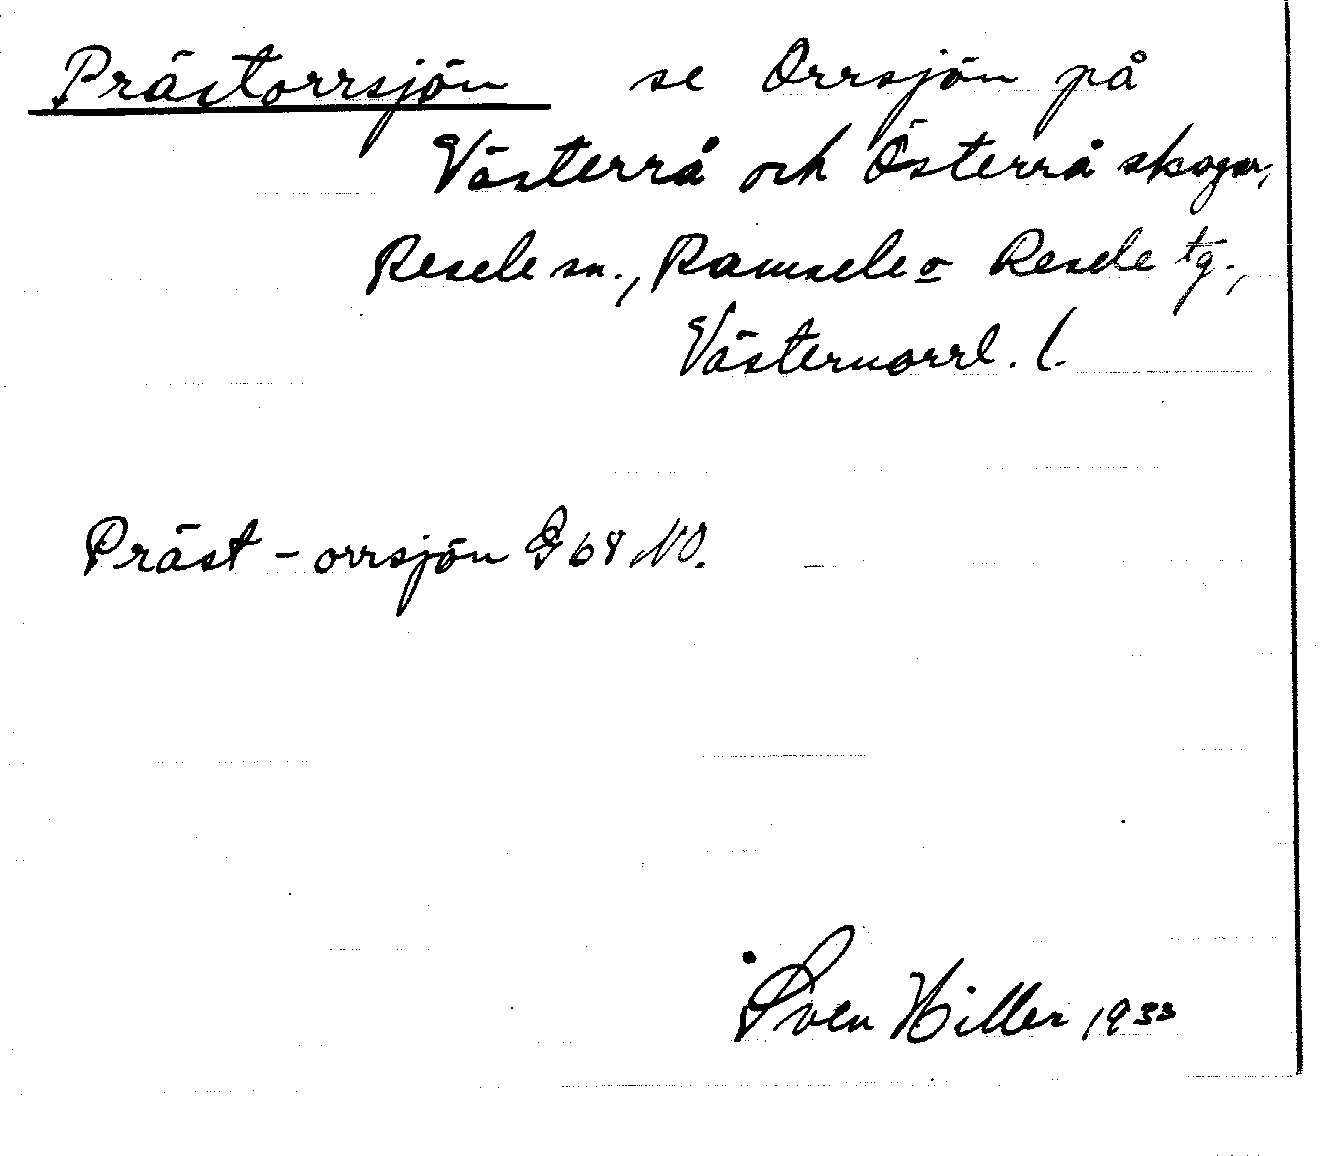 Prästorrsjön se Orrsjön på
Västerrå och Österrå skogar,
Resele sn., Ramsele o Resele tg.,
Västernorrl. l.
Präst-orrsjön G 68 NO.
Sven Hiller 1933